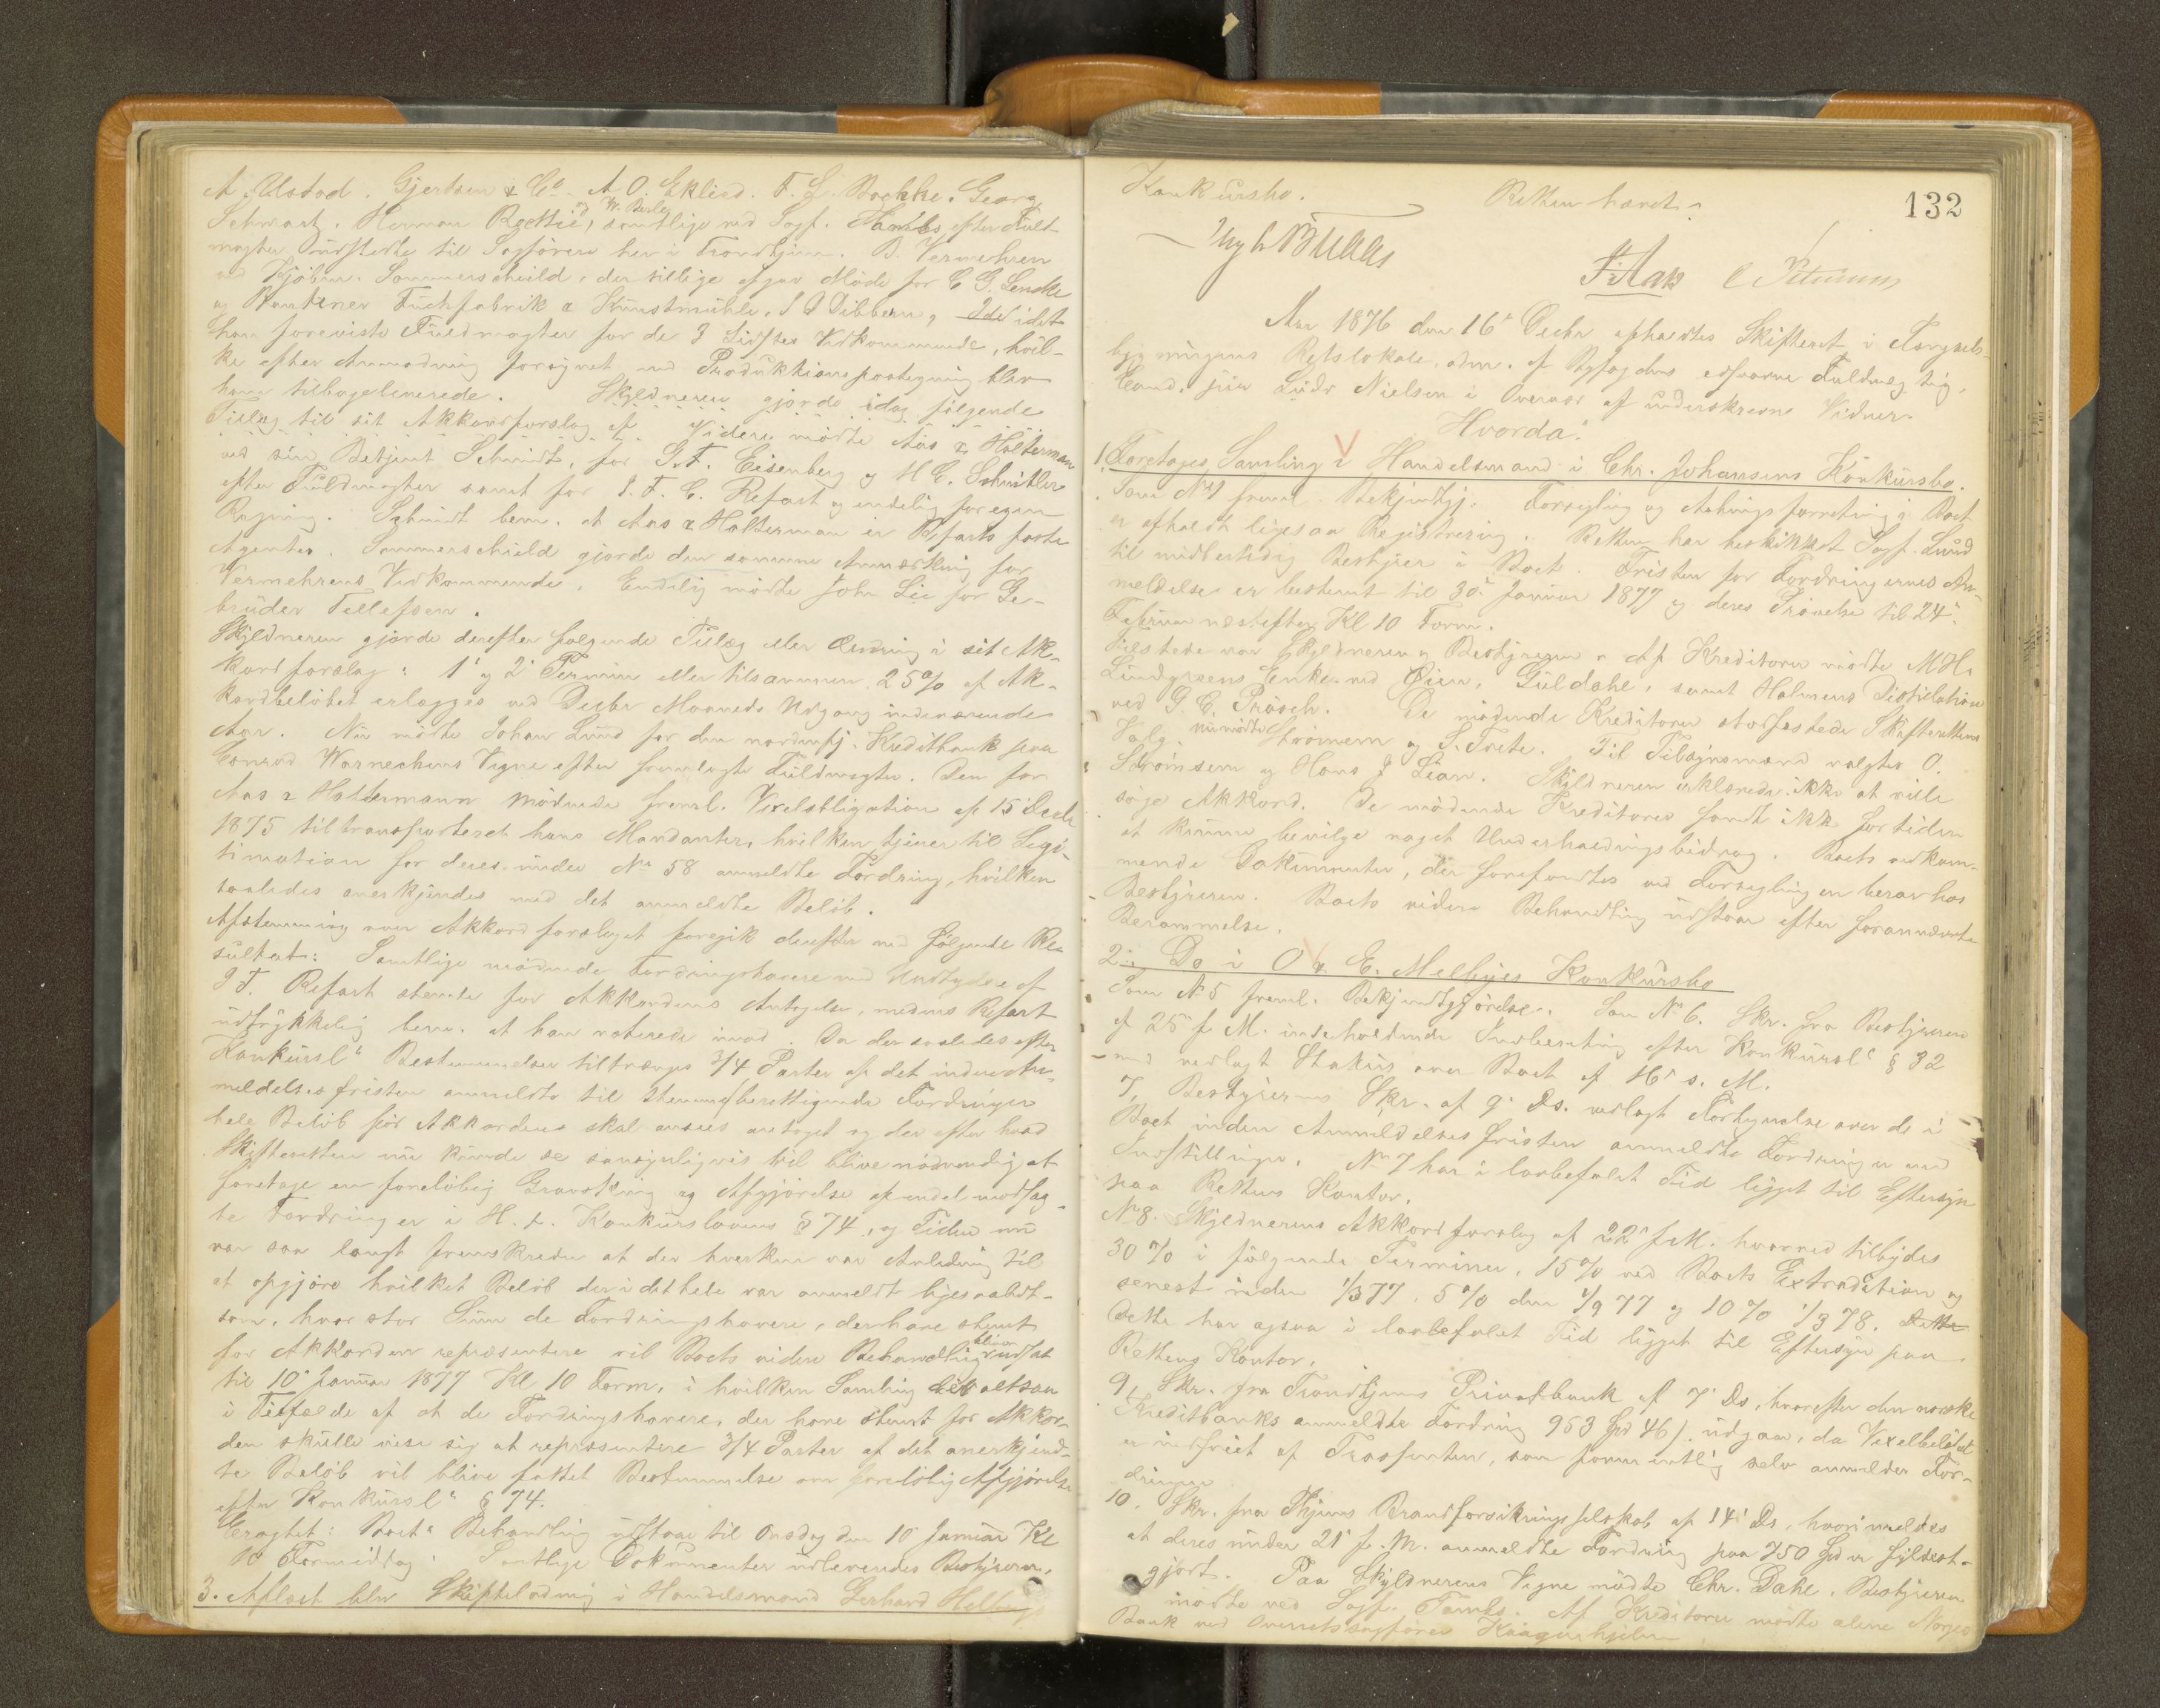 A. Ustad. Gjertsen & Co. A O. Eklied. F. L. Bachke. Georg
Schwart. Herman Roettie, og W. Berle samtlige ved Sagf. Tambs efter Fuld-
magter udstedte til Sagförere her i Trondhjem. D. Vermehren
ved Kjöbm. Sommerschield, der tillige afgav Möde for C G. Lencke
og Tuchfabrik & Kunstmühle. I D Dibbern, idet
han foreviste Fuldmagter for de 3 Sidstes Vedkommende, hvil-
ke efter Anmodning forsynet med Produktionspaategning blev
ham tilbageleverede. Skyldneren gjorde idag følgende
Tillæg til sit Akkordforslag af Videre mødte Aas & Holterman
ved sin Betjent Schmidt, for G. F. Eisenberg og H C. Schnitler
efter Fuldmagter samt for I. F. C. Refart og endelig for egen
Regning. Schmidt bem. at Aas & Holterman er Refarts faste
Agenter. Sommerschield gjorde den samme Anmærkning for
Vermehrens Vedkommende. Endelig mödte John Lie for Ge-
brüder Tellefsen.
Skyldneren gjorde derefter følgende Tillæg eller Ændring i sit Ak-
kordforslag: 1' og 2' Termin eller tilsammen 25% af Ak-
kordbeløbet erlægges ved Decbr Maaneds Udgang indeværende
Aar. Nu mödte Johan Lund for den nordenfj. Kreditbank paa
Conrad Warneckens Vegne efter fremlagte Fuldmagter. Den for
Aas & Holtermann mödende freml. Vexelobligation af 15 Decbr
1875 tiltransporteret hans Mandanter, hvilken tjener til Legi-
timation for deres under No 58 anmeldte Fordring, hvilken
saaledes anerkjendes med det anmeldte Beløb.
Afstemning over Akkordforslaget foregik derefter med følgende Re-
sultat: Samtlige mødende Fordringshavere med Undtagelse af
I F. Refart stemte for Akkordens Antagelse, medens Refart
udtrykkelig bem. at han voterede imod. Da der saaledes efter
Konkursl's Bestemmelser tiltrænges 3/4 Parter af det inden An-
meldelsesfristen anmeldte til Stemme berettigende Fordringers
hele Beløb før Akkorden skal ansees antaget og der efter hvad
Skifteretten nu kunde se sansynligvis vil blive nødvendig at
foretage en foreløbig Granskning og Afgjörelse af endel modsag-
te Fordringer i H. t. Konkurslovens § 74, og Tiden nu
var saa langt fremskreden at der hverken var Anledning til
at opgjöre hvilket Beløb der i det hele var anmeldt ligesaalidt
som, hvor stor Sum de Fordringshavere, der have stemt
for Akkorden repræsentere vil Boets videre Behandling blive udsat
til 10' Januar 1877 Kl 10 Form. i hvilken Samling det altsaa
i Tilfælde af at de Fordringshavere, der have stemt for Akkor-
den skulle vise sig at repræsentere 3/4 Parter af det anerkjend-
te Beløb vil blive fattet Bestemmelse om foreløbig Afgjörelse
efter Konkursl's § 74.
Eragtet: Boets Behandling udstaar til Onsdag den 10 Januar Kl
10 Formiddag. Samtlige Dokumenter udleveredes Bestyreren.
3. Aflæst blev Skifteladning i Handelsmand Gerhard Hellbergs
Konkursbo. Retten hævet.
132
Aar 1876 den 16' Decbr afholdtes Skifteret i Fængsels-
bygningens Retslokale, adm. af Byfogdens edsvorne Fuldmægtig,
Cand. jur Lüdr Nielsen i Overvær af underskrevne Vidner.
Hvorda:
1, Foretages Samling i Handelsmand i Chr. Johansens Konkursbo.
Som No 1 freml. Bekjendtgj. Forsegling og Aabningsforretning i Boet
er afholdt ligesaa Registrering. Retten har beskikket Sagf. Lund
til midlertidig Bestyrer i Boet. Fristen for Fordringernes An-
meldelse er bestemt til 30' Januar 1877 og deres Prövelse til 24'
Februar næstefter Kl 10 Form.
Tilstede var Skyldneren og Bestyreren. Af Kreditorer mødte M H.
Lundgreens Enke ved Øien, Guldahl, samt Holmens Distillation
ved G. C. Prösch. De mødende Kreditorer stadfestede Skifterettens
Valg. nu mødte Strömsem og S. Frete. Til Tilsynsmænd valgtes O.
Strömsem og Hans J Lian. Skyldneren erklærede ikke at ville
søge Akkord. De mødende Kreditorer fandt ikke for tiden
at kunne bevilge noget Underholdningsbidrag. Boets vedkom-
mende Dokumenter, der forefandtes ved Forseglingen beror hos
Bestyreren. Boets videre Behandling udstaar efter forannævnte
Berammelse.
2. Do i O & E. Melbyes Konkursbo
Som No 5 freml. Bekjendtgjörelse. Som No 6. Skr. fra Bestyreren
af 25' f. M. indeholdende Indberetning efter Konkursl's § 32
med vedlagt Status over Boet af 16' s. M.
7, Bestyrerens Skr. af 9' ds. vedlagt Fortegnelse over de i
Boet inden Anmeldelsesfristen anmeldte Fordringer med
Indstillinger. No 7 har i lovbefalet Tid ligget til Eftersyn
paa Rettens Kontor.
No 8. Skyldnerens Akkordforslag af 22' f. M. hvorved tilbydes
30 % i følgende Terminer, 15 % ved Boets Extradition og
senest inden 1/3 77. 5 % den 1/9 77 og 10 % 1/3 78. Dette
Dette har ogsaa i lovbefalet Tid ligget til Eftersyn paa
Rettens Kontor.
9, Skr. fra Trondhjems Privatbank af 7' ds, hvorefter den norske
Kreditbanks anmeldte Fordring 953 Spd 46 ſ. udgaar, da Vexelbeløbet
er indfriet af Trassenten, som formentlig selv anmelder For-
dringen
10. Skr. fra Thjems Brandforsikringsselskab af 14' ds, hvori meldes
at deres under 21' f. M. anmeldte Fordring paa 750 Spd er fyldest-
gjort. Paa Skyldnerens Vegne mødte Chr. Dahl. Bestyreren
mødte ved Sagf. Tambs. Af Kreditorer mødte alene Norges
Bank ved Overretssagfører